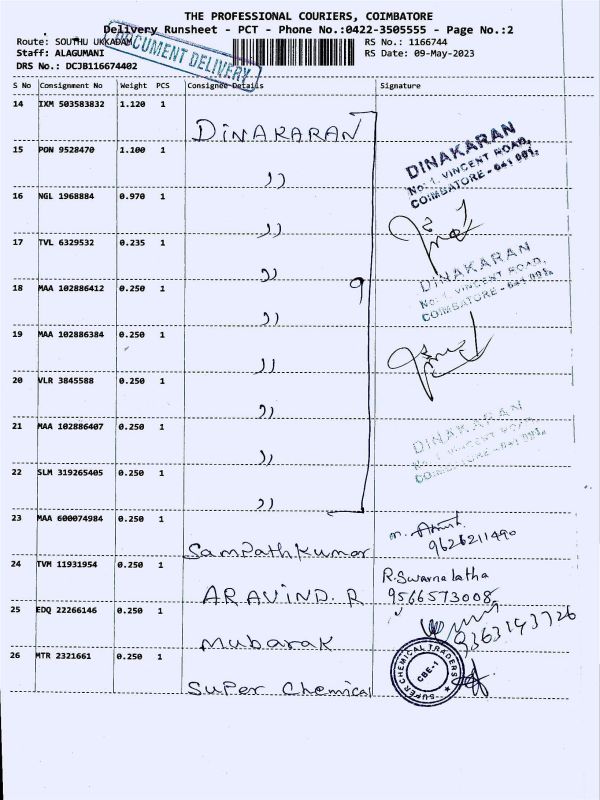 THE PROFESSIONAL COURIERS, COIMBATORE
Delivery Runsheet - PCT - Phone No.:0422-3505555 - Page No.:2
Route: SOUTHU UKKADAM
RS No.: 1166744
Staff: ALAGUMANI
RS Date: 09-May-2023
DRS No.: DCJB116674402
DOCUMENT DELIVERY
S No Consignment No Weight PCS Consignee Details Signature
14 IXM 503583832 1.120 1 DINAKARAN
15 PON 9528470 1.100 1 ,,
DINAKARAN
No: 1, VINCENT ROAD,
COIMBATORE - 641 001.
16 NGL 1968884 0.970 1 ,,
17 TVL 6329532 0.235 1 ,,
DINAKARAN
No: 1, VINCENT ROAD,
COIMBATORE - 641 001.
18 MAA 102886412 0.250 1 ,, 9
19 MAA 102886384 0.250 1 ,,
20 VLR 3845588 0.250 1 ,,
21 MAA 102886407 0.250 1 ,,
DINAKARAN
No: 1, VINCENT ROAD,
COIMBATORE - 641 001.
22 SLM 319265405 0.250 1 ,,
23 MAA 600074984 0.250 1 Sampathkumar
9626211490
24 TVM 11931954 0.250 1 ARAVIND. R
R.Swarnalatha
9566573008
25 EDQ 22266146 0.250 1 Mubarak
9363143726
26 MTR 2321661 0.250 1 Super Chemical
SUPER CHEMICAL TRADERS
CBE-1